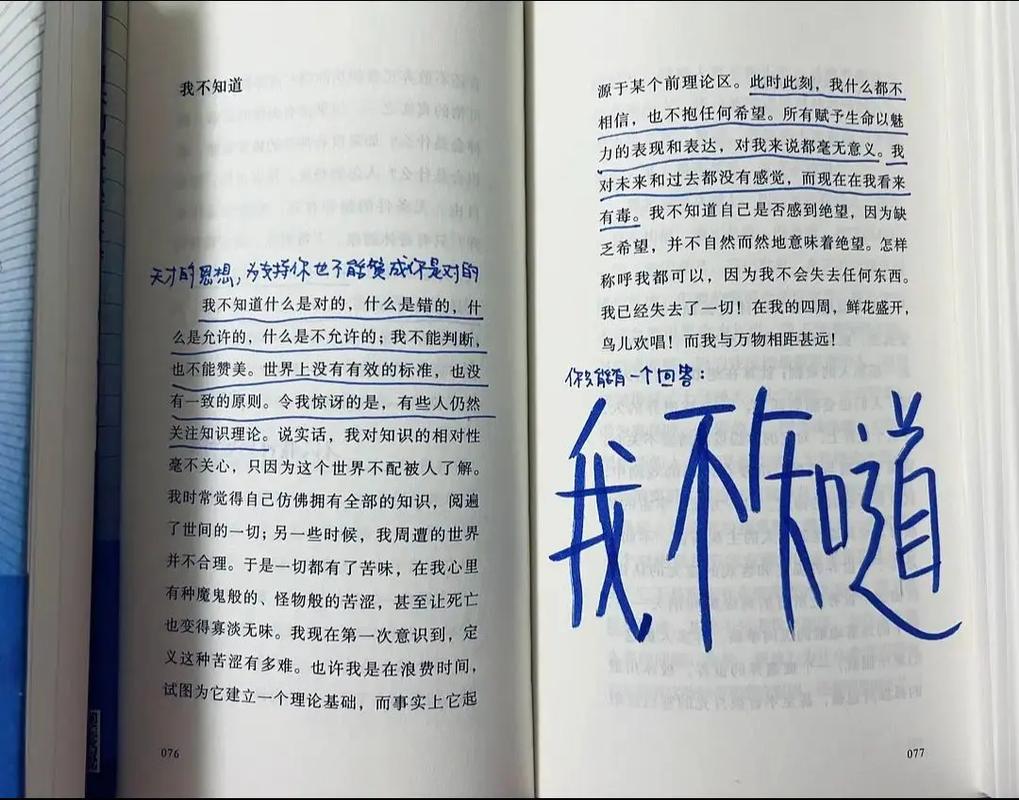 我不知道
天才的思想，为支持你也不能赞成你是对的
我不知道什么是对的，什么是错的，什
么是允许的，什么是不允许的；我不能判断，
也不能赞美。世界上没有有效的标准，也没
有一致的原则。令我惊讶的是，有些人仍然
关注知识理论。说实话，我对知识的相对性
毫不关心，只因为这个世界不配被人了解。
我时常觉得自己仿佛拥有全部的知识，阅遍
了世间的一切；另一些时候，我周遭的世界
并不合理。于是一切都有了苦味，在我心里
有种魔鬼般的、怪物般的苦涩，甚至让死亡
也变得寡淡无味。我现在第一次意识到，定
义这种苦涩有多难。也许我是在浪费时间，
试图为它建立一个理论基础，而事实上它起
076
源于某个前理论区。此时此刻，我什么都不
相信，也不抱任何希望。所有赋予生命以魅
力的表现和表达，对我来说都毫无意义。我
对未来和过去都没有感觉，而现在在我看来
有毒。我不知道自己是否感到绝望，因为缺
乏希望，并不自然而然地意味着绝望。怎样
称呼我都可以，因为我不会失去任何东西。
我已经失去了一切！在我的四周，鲜花盛开，
鸟儿欢唱！而我与万物相距甚远！
你只能有一个回答：
我不知道
077